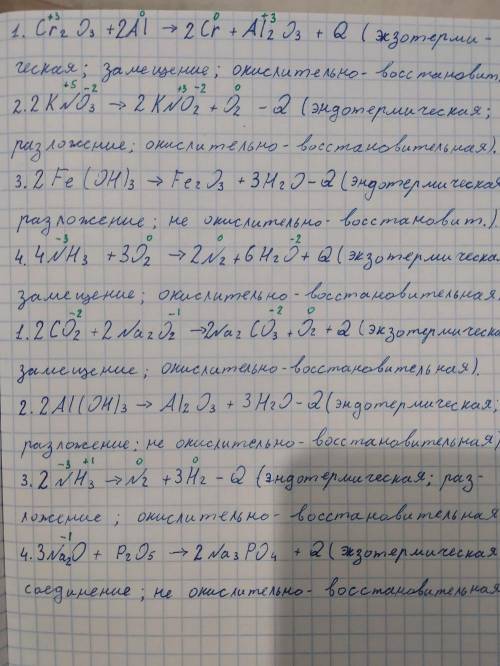 +3 0 0 +3
1. Cr₂O₃ + 2Al → 2Cr + Al₂O₃ + Q (экзотерми-
ческая; замещение; окислительно-восстановит.
+5 -2 +3 -2 0
2. 2KNO₃ → 2KNO₂ + O₂ - Q (эндотермическая;
разложение; окислительно-восстановительная).
3. 2Fe(OH)₃ → Fe₂O₃ + 3H₂O - Q (эндотермическая
разложение; не окислительно-восстановит.)
-3 0 0 -2
4. 4NH₃ + 3O₂ → 2N₂ + 6H₂O + Q (экзотермическая
замещение; окислительно-восстановительная
-2 -1 -2 0
1. 2CO₂ + 2Na₂O₂ → 2Na₂CO₃ + O₂ + Q (экзотермическая
замещение; окислительно-восстановительная).
2. 2Al(OH)₃ → Al₂O₃ + 3H₂O - Q (эндотермическая;
разложение; не окислительно-восстановительная)
-3 +1 0 0
3. 2NH₃ → N₂ + 3H₂ - Q (эндотермическая; раз-
ложение; окислительно-восстановительная
-1
4. 3Na₂O + P₂O₅ → 2Na₃PO₄ + Q (экзотермическая
соединение; не окислительно-восстановительная